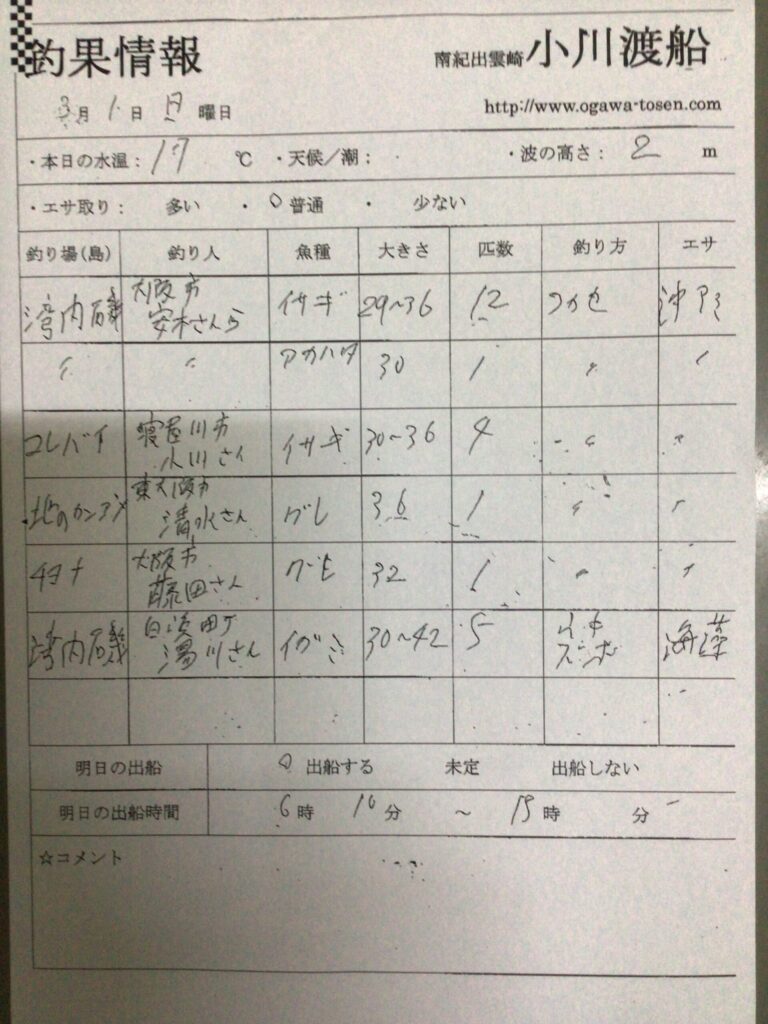 釣果情報 南紀出雲崎小川渡船
3月1日 日曜日 http://www.ogawa-tosen.com
・本日の水温：17 ℃ ・天候／潮： ・波の高さ：2 m
・エサ取り： 多い ・ 〇普通 ・ 少ない
釣り場(島) 釣り人 魚種 大きさ 匹数 釣り方 エサ
湾内磯 大阪市 安木さんら イサギ 29〜36 12 フカセ 沖アミ
〃 〃 アカハタ 30 1 〃 〃
コレバイ 寝屋川市 小川さん イサギ 30〜36 4 〃 〃
地のカンノンメ 東大阪市 清水さん グレ 36 1 〃 〃
大阪市 藤田さん グレ 32 1 〃 〃
湾内磯 白浜町 湯川さん イガミ 30〜42 5 海藻
明日の出船 〇出船する 未定 出船しない
明日の出船時間 6時 10分 〜 15時 分
☆コメント